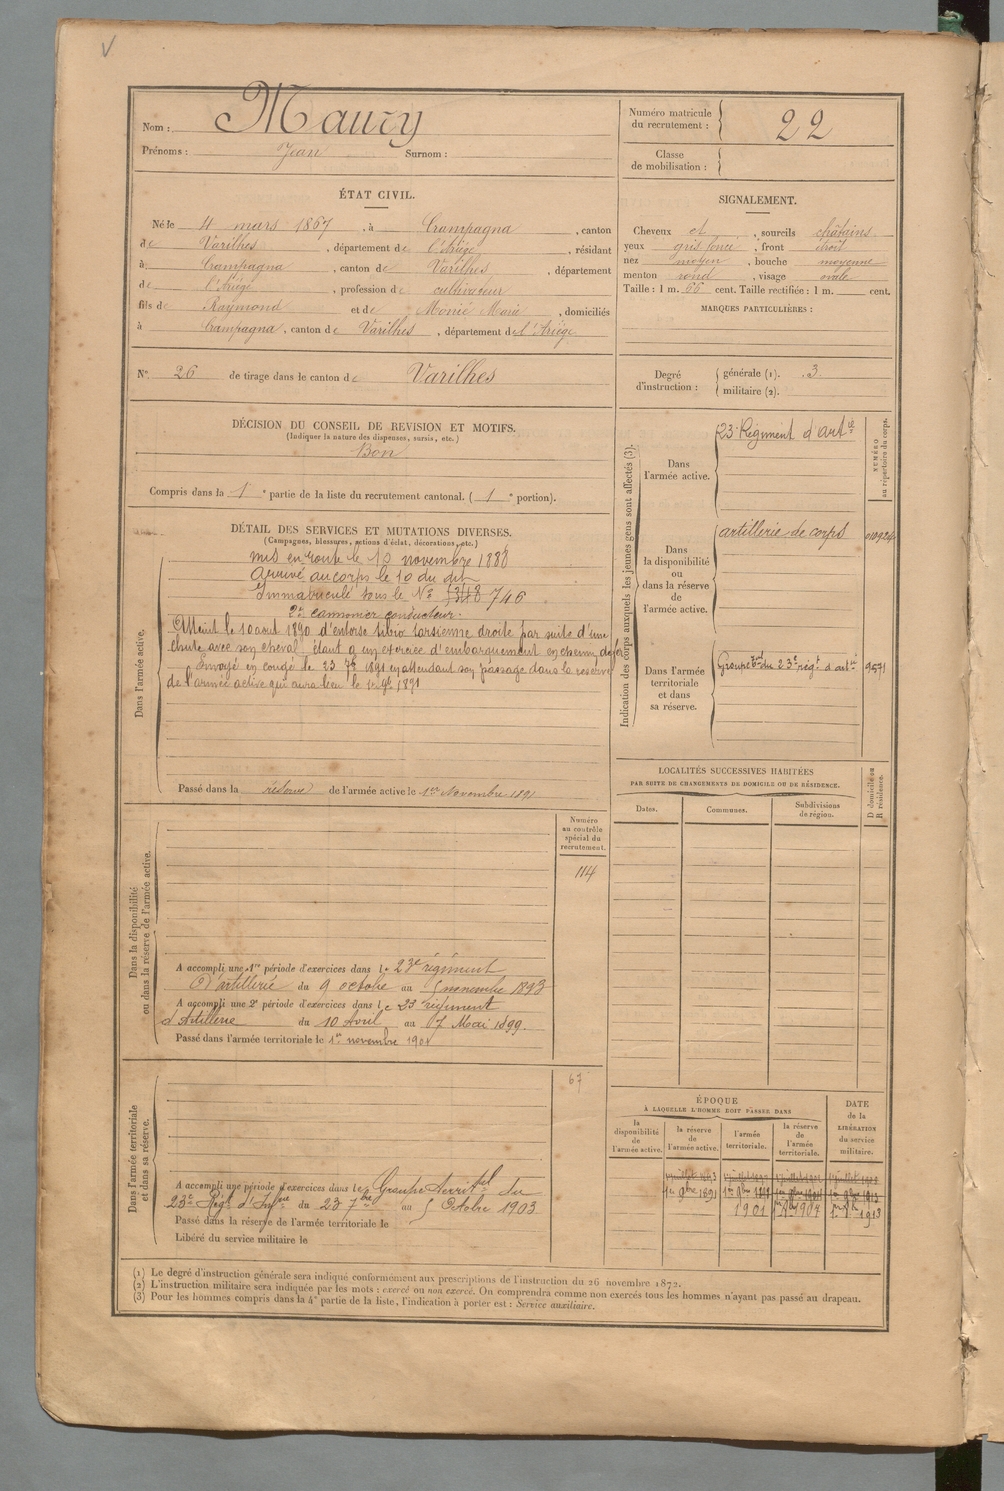 Nom : Maury
Prénoms : Jean Surnom :
Numéro matricule du recrutement : 22
Classe de mobilisation :
ÉTAT CIVIL.
Né le 4 mars 1867, à Crampagna, canton
de Varilhes, département de l'Ariège, résidant
à Crampagna, canton de Varilhes, département
de l'Ariège, profession de cultivateur
fils de Raymond et de Monié Marie, domiciliés
à Crampagna, canton de Varilhes, département de l'Ariège
SIGNALEMENT.
Cheveux et, sourcils châtains.
yeux gris foncé, front droit
nez moyen, bouche moyenne
menton rond, visage ovale
Taille : 1 m. 66 cent. Taille rectifiée : 1 m. cent.
MARQUES PARTICULIÈRES :
N° 26 de tirage dans le canton de Varilhes
Degré d'instruction :
générale (1). 3.
militaire (2).
DÉCISION DU CONSEIL DE REVISION ET MOTIFS.
(Indiquer la nature des dispenses, sursis, etc.)
Bon
Compris dans la 1e partie de la liste du recrutement cantonal. ( 1e portion).
DÉTAIL DES SERVICES ET MUTATIONS DIVERSES.
(Campagnes, blessures, actions d'éclat, décorations, etc.)
Dans l'armée active.
Mis en route le 10 novembre 1888
Arrivé au corps le 10 du dit
Immatriculé sous le N° 746
2e cannonier conducteur.
Atteint le 10 aout 1890 d'entorse tibio tarsienne droite par suite d'une
chute avec son cheval, étant à un exercice d'embarquement en chemin de fer
Envoyé en congé le 23 7bre 1891 en attendant son passage dans la réserve
de l'armée active qui aura lieu le 1er 9bre 1891
Passé dans la réserve de l'armée active le 1er Novembre 1891
Indication des corps auxquels les jeunes gens sont affectés (3).
NUMÉRO au répertoire du corps.
Dans l'armée active.
23e Régiment d'artie
Dans la disponibilité ou dans la réserve de l'armée active.
artillerie de corps
Dans l'armée territoriale et dans sa réserve.
Groupe Teral du 23e régt d'artie 9571
LOCALITÉS SUCCESSIVES HABITÉES
PAR SUITE DE CHANGEMENTS DE DOMICILE OU DE RÉSIDENCE.
Dates. Communes. Subdivisions de région. D domicile ou R résidence.
Dans la disponibilité ou dans la réserve de l'armée active.
Numéro au contrôle spécial du recrutement.
114
A accompli une 1re période d'exercices dans le 23e régiment
D'artillerie du 9 octobre au 5 novembre 1893
A accompli une 2e période d'exercices dans le 23 régiment
d'Artillerie du 10 Avril au 07 Mai 1899.
Passé dans l'armée territoriale le 1er novembre 1901
Dans l'armée territoriale et dans sa réserve.
67
A accompli une période d'exercices dans le Groupe territal du
23e Régt d'Infrie du 23 7bre au 5 Octobre 1903
Passé dans la réserve de l'armée territoriale le
Libéré du service militaire le
ÉPOQUE
À LAQUELLE L'HOMME DOIT PASSER DANS
la disponibilité de l'armée active.
la réserve de l'armée active.
l'armée territoriale.
la réserve de l'armée territoriale.
DATE de la LIBÉRATION du service militaire.
1er 9bre 1891
1901
(1) Le degré d'instruction générale sera indiqué conformément aux prescriptions de l'instruction du 26 novembre 1872.
(2) L'instruction militaire sera indiquée par les mots : exercé ou non exercé. On comprendra comme non exercés tous les hommes n'ayant pas passé au drapeau.
(3) Pour les hommes compris dans la 4e partie de la liste, l'indication à porter est : Service auxiliaire.